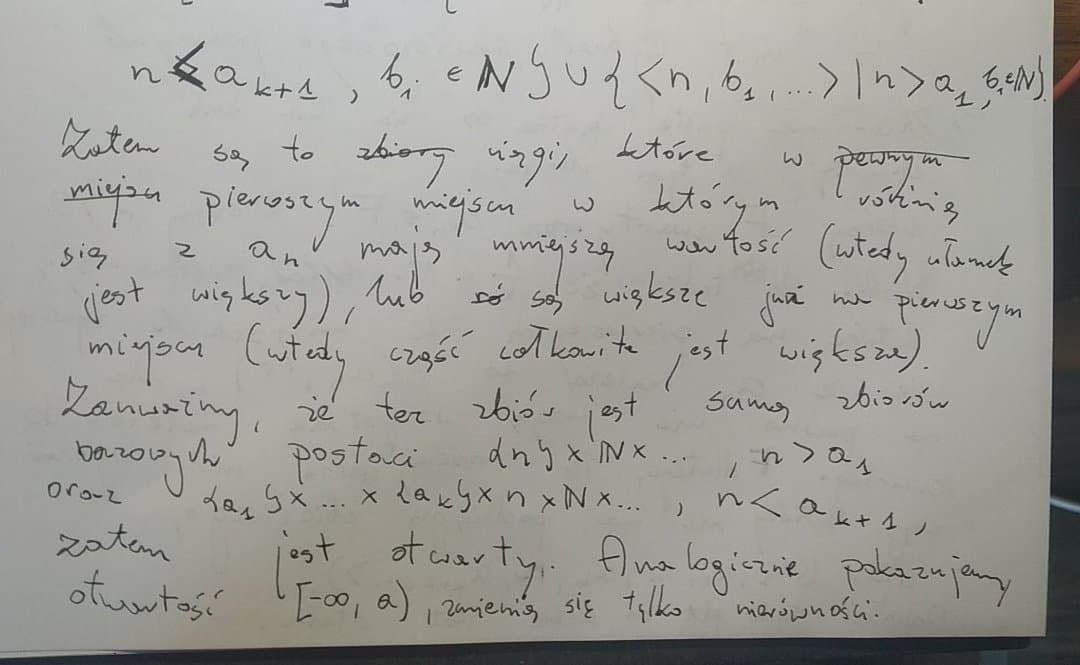 n < a_{k+1}, b_i ∈ ℕ} ∪ {<n, b_1, ...> | n > a_1, b_i ∈ ℕ}.
Zatem są to zbiory ciągi, które w pewnym
miejscu pierwszym miejscu w którym różnią
się z a_n mają mniejszą wartość (wtedy ułamek
jest większy), lub są większe już na pierwszym
miejscu (wtedy część całkowita jest większa).
Zauważmy, że ten zbiór jest sumą zbiorów
bazowych postaci {n} × ℕ × ... , n > a_1
oraz {a_1} × ... × {a_k} × n × ℕ × ... , n < a_{k+1},
zatem jest otwarty. Analogicznie pokazujemy
otwartość [-∞, a), zmienią się tylko nierówności.